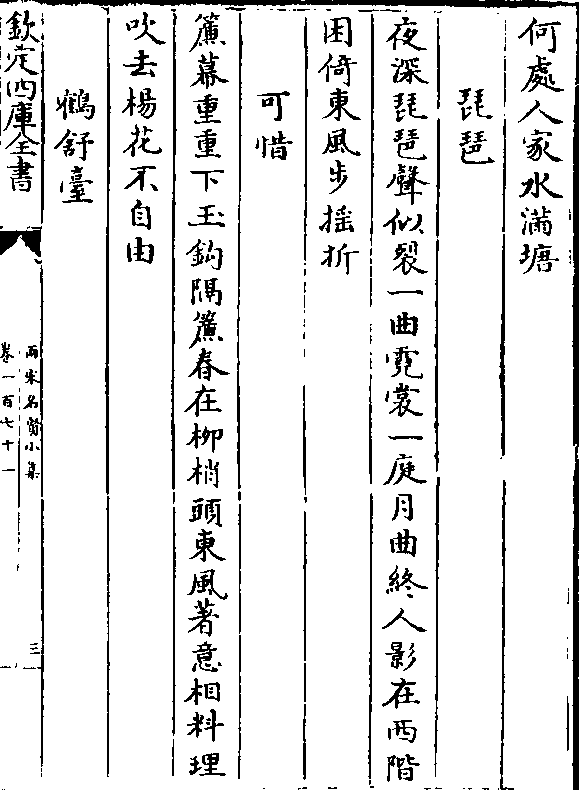 何處人家水滿塘
琵琶
夜深琵琶聲似裂一曲霓裳一庭月曲終人影在西階
困倚東風步摇折
可惜
簾幕重重下玉鈎隔簾春在柳梢頭東風著意相料理
吹去楊花不自由
鶴舒臺
欽定四庫全書
兩宋名賢小集
卷一百七十一
三